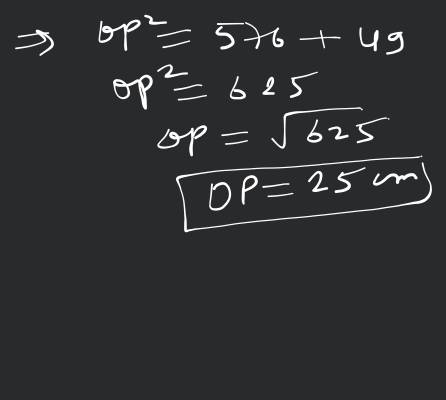 ⇒ OP² = 576 + 49
OP² = 625
OP = √625
OP = 25 cm